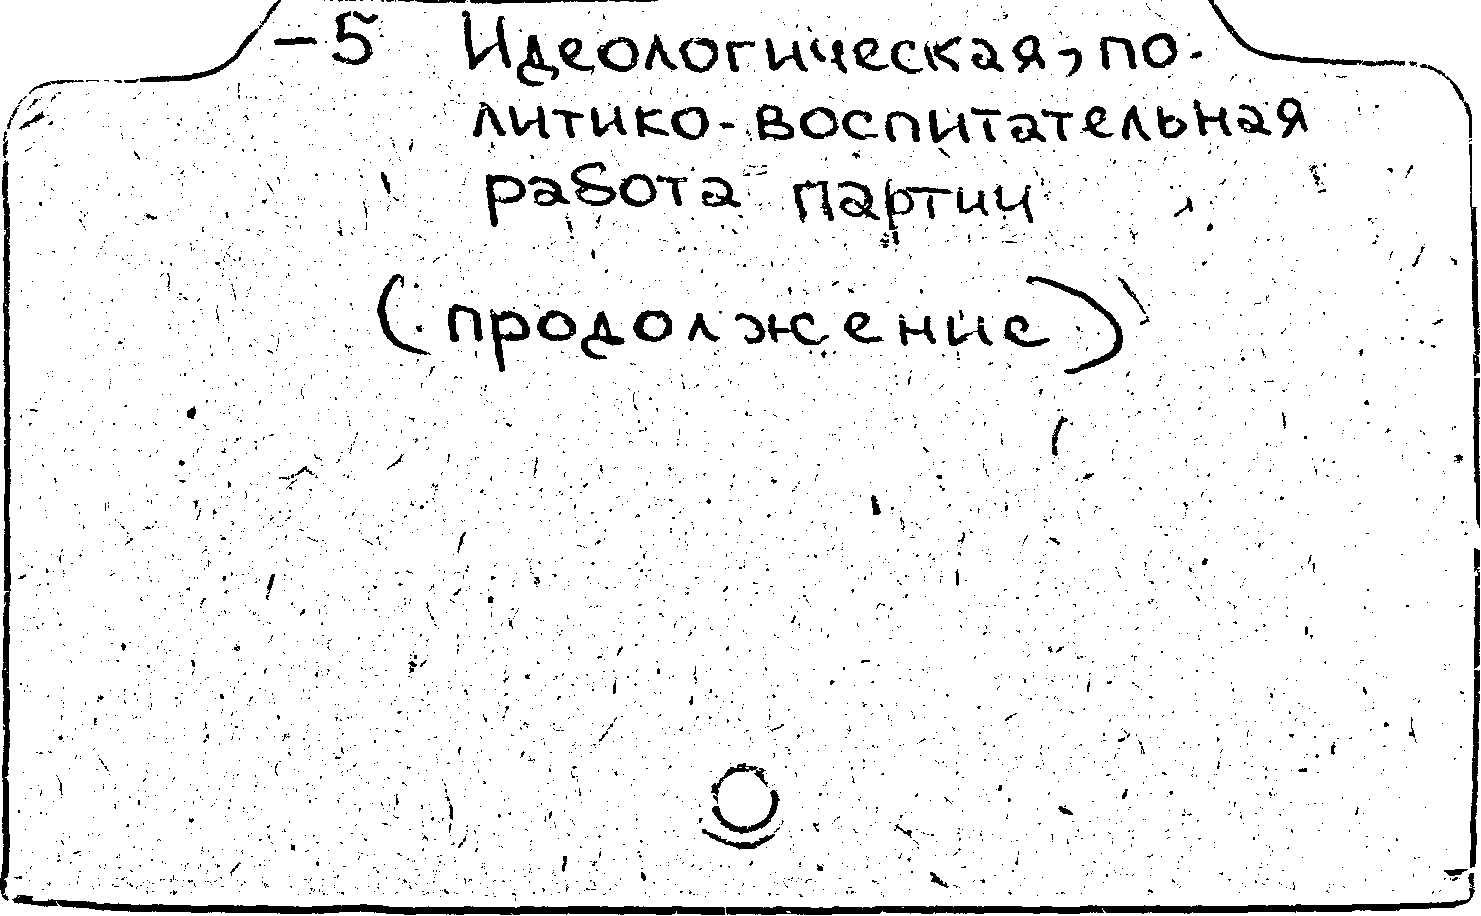 -5 Идеологическая, по-
литико-воспитательная
работа партии
(продолжение)